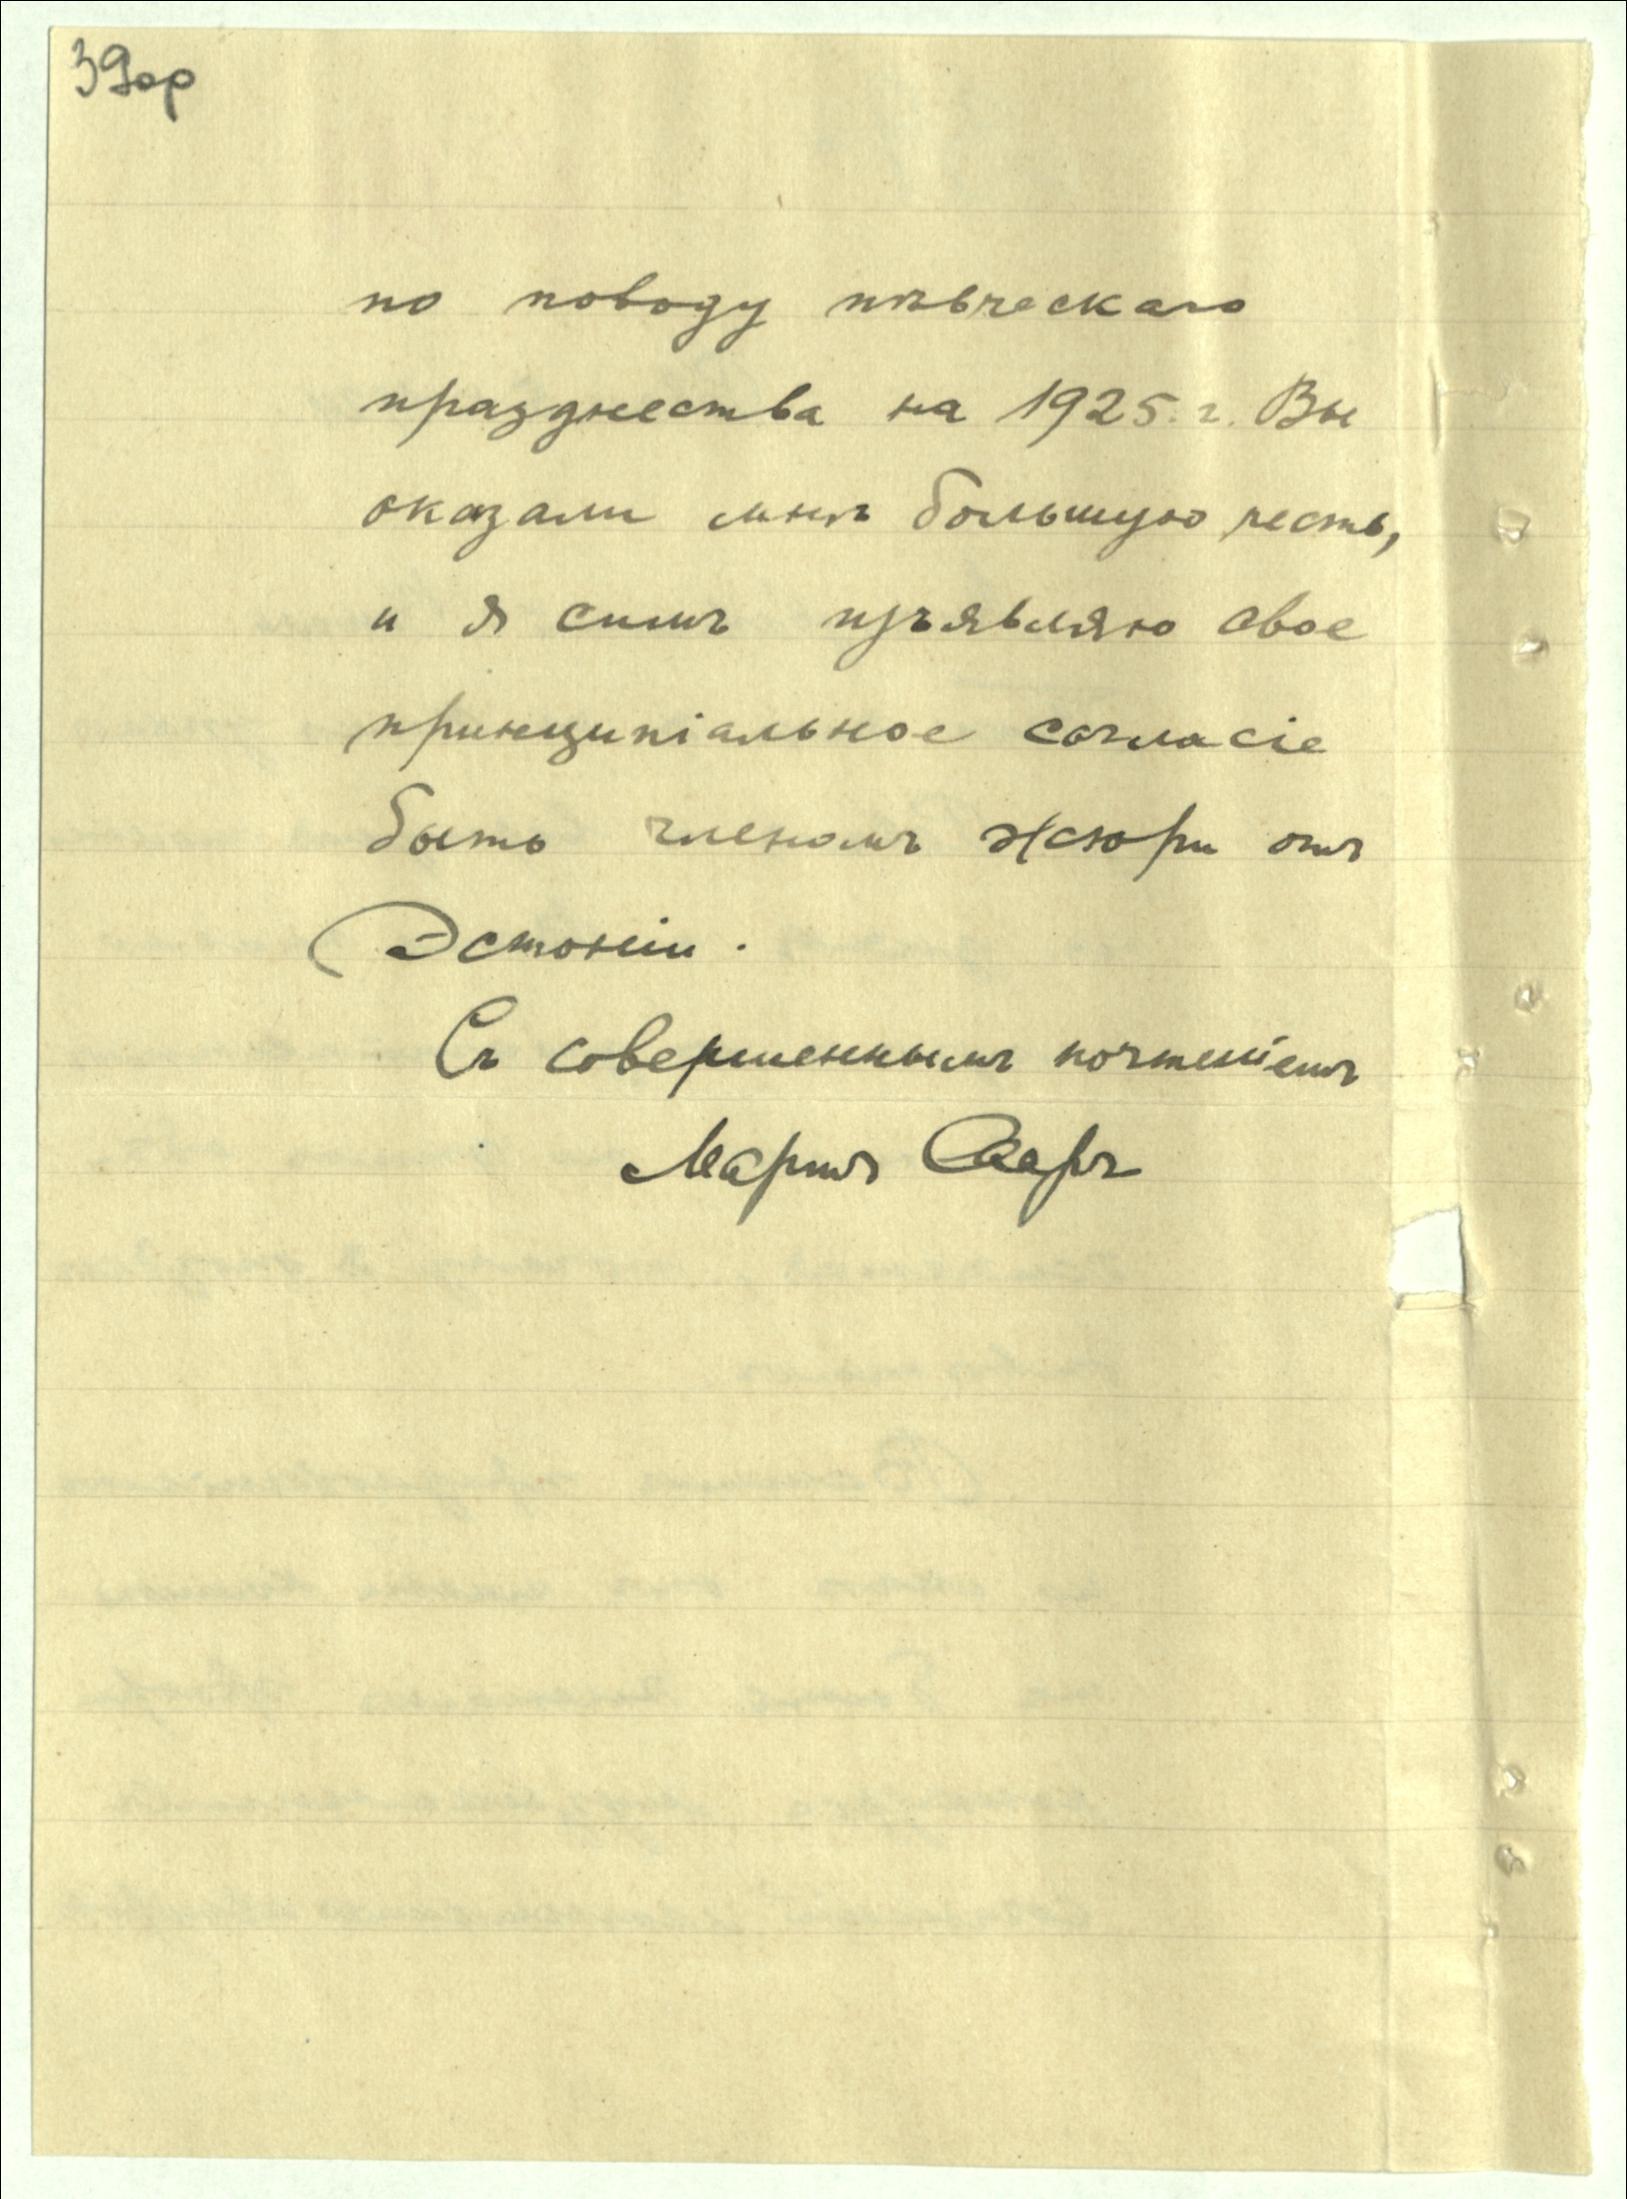 39ар
по поводу пѣвческаго
празднества на 1925. г. Вы
оказали мнѣ большую честь,
и я симъ изъявляю свое
принципіальное согласіе
быть членомъ жюри отъ
Эстоніи.
Съ совершеннымъ почтеніемъ
Мартъ Сааръ